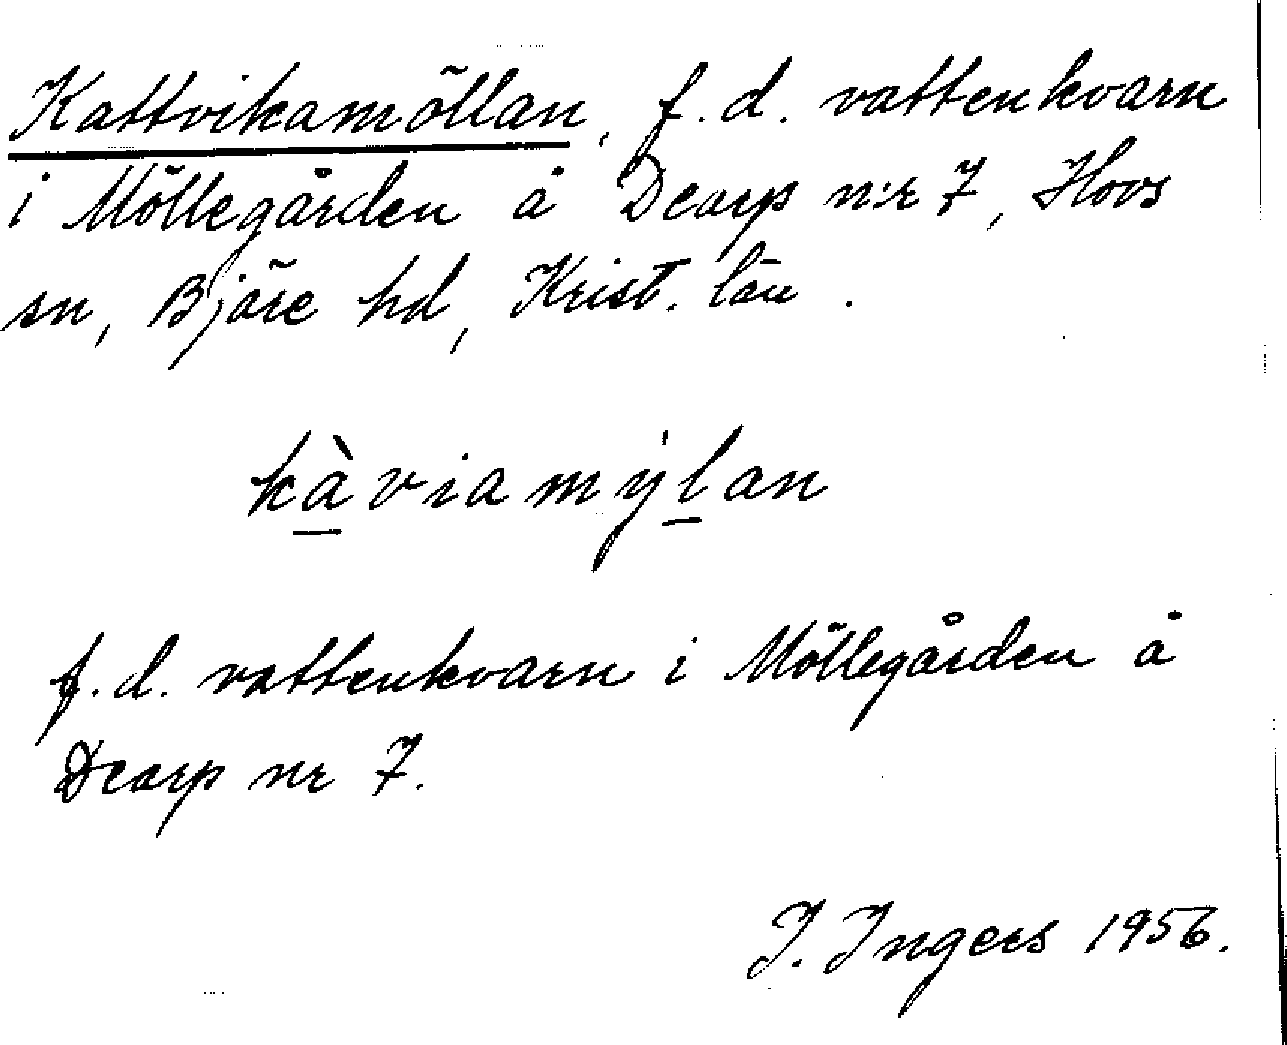 Kattvikamöllan, f.d. vattenkvarn
i Möllegården å Dearp n:r 7, Hovs
sn, Bjäre hd, Krist. län.
kàviamýlan
f.d. vattenkvarn i Möllegården å
Dearp nr 7.
I. Ingers 1956.